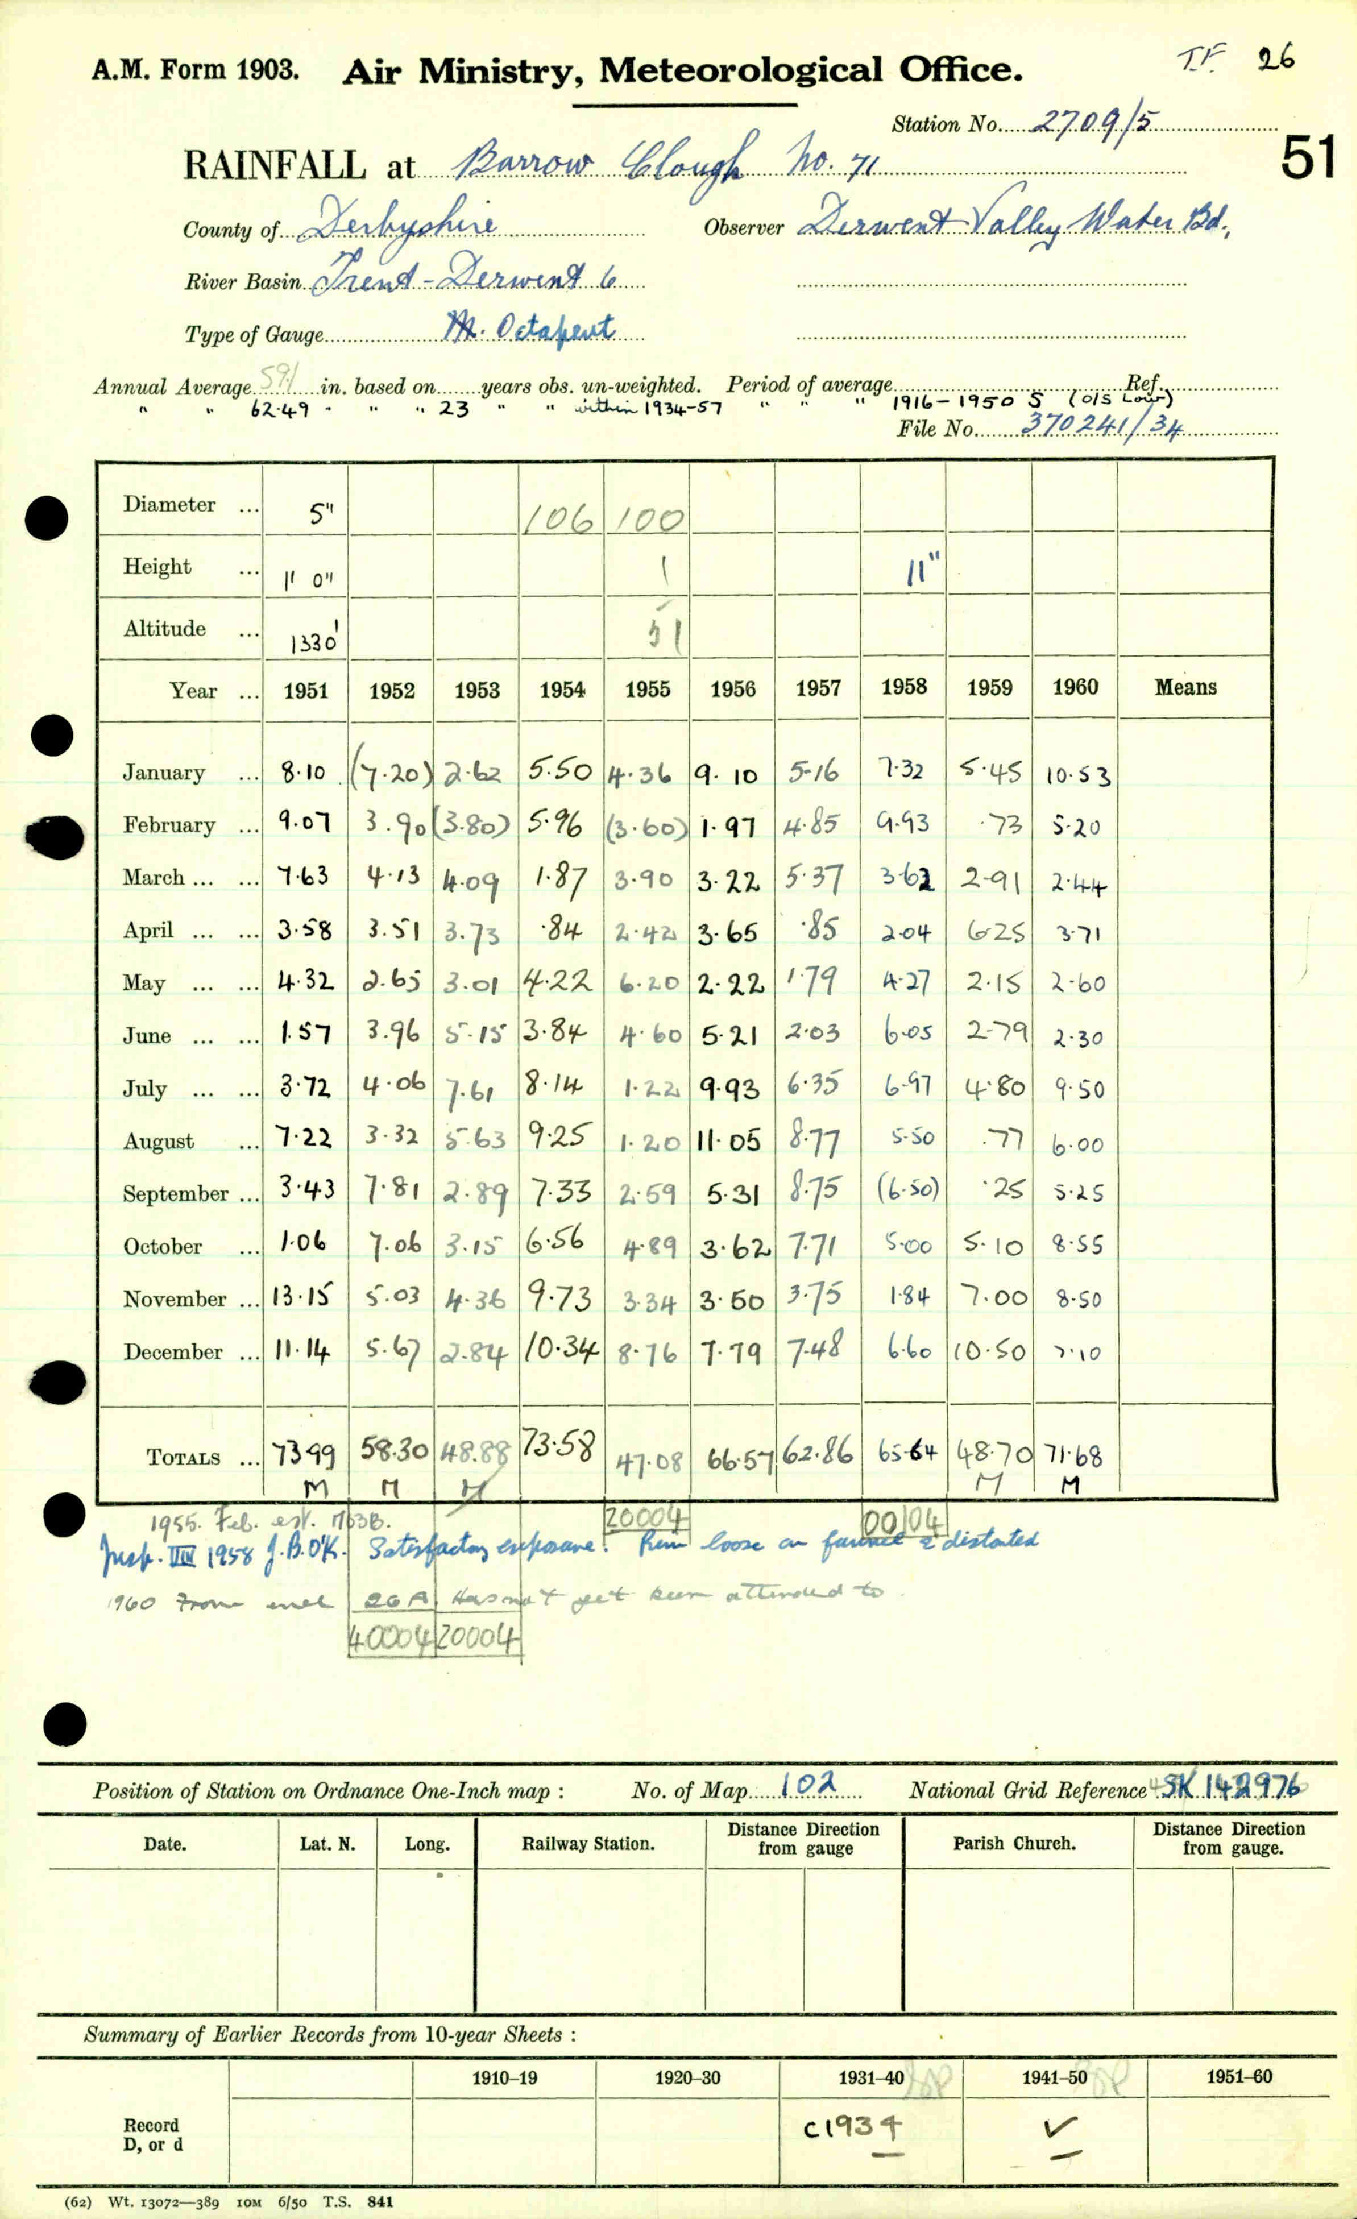 T.F. 26
A.M. Form 1903. Air Ministry, Meteorological Office.
Station No. 2709/5
51
RAINFALL at Barrow Clough No. 71
County of Derbyshire Observer Derwent Valley Water Bd.,
River Basin Trent - Derwent 6
Type of Gauge M. Octapent
Annual Average 591 in. based on years obs. un-weighted. Period of average Ref.
" " 62.49 " " " 23 " " within 1934-57 " " " 1916-1950 S (O/S Low)
File No. 370241/34
Diameter ... 5" 106 100
Height ... 1' 0" 1 11"
Altitude ... 1330' 51
Year ... 1951 1952 1953 1954 1955 1956 1957 1958 1959 1960 Means
January ... 8.10 (7.20) 2.62 5.50 4.36 9.10 5.16 7.32 5.45 10.53
February ... 9.07 3.90 (3.80) 5.96 (3.60) 1.97 4.85 9.93 .73 5.20
March ... ... 7.63 4.13 4.09 1.87 3.90 3.22 5.37 3.62 2.91 2.44
April ... ... 3.58 3.51 3.73 .84 2.42 3.65 .85 2.04 6.25 3.71
May ... ... 4.32 2.65 3.01 4.22 6.20 2.22 1.79 4.27 2.15 2.60
June ... ... 1.57 3.96 5.15 3.84 4.60 5.21 2.03 6.05 2.79 2.30
July ... ... 3.72 4.06 7.61 8.14 1.22 9.93 6.35 6.97 4.80 9.50
August ... 7.22 3.32 5.63 9.25 1.20 11.05 8.77 5.50 .77 6.00
September ... 3.43 7.81 2.89 7.33 2.59 5.31 8.75 (6.50) .25 5.25
October ... 1.06 7.06 3.15 6.56 4.89 3.62 7.71 5.00 5.10 8.55
November ... 13.15 5.03 4.36 9.73 3.34 3.50 3.75 1.84 7.00 8.50
December ... 11.14 5.67 2.84 10.34 8.76 7.79 7.48 6.60 10.50 7.10
TOTALS ... 73.99 58.30 48.88 73.58 47.08 66.57 62.86 65.64 48.70 71.68
M M M M M
1955. Feb. est. 7b3B. 20004 00104
Insp. VIII 1958 J.B.O'K. Satisfactory exposure. Rim loose on funnel & distorted
1960 From 26A Has not yet been attended to
40004 20004
Position of Station on Ordnance One-Inch map : No. of Map 102 National Grid Reference SK 142976
Date. Lat. N. Long. Railway Station. Distance Direction from gauge Parish Church. Distance Direction from gauge.
Summary of Earlier Records from 10-year Sheets :
1910-19 1920-30 1931-40 1941-50 1951-60
Record D, or d c1934 ✓
(62) Wt. 13072—389 10M 6/50 T.S. 841